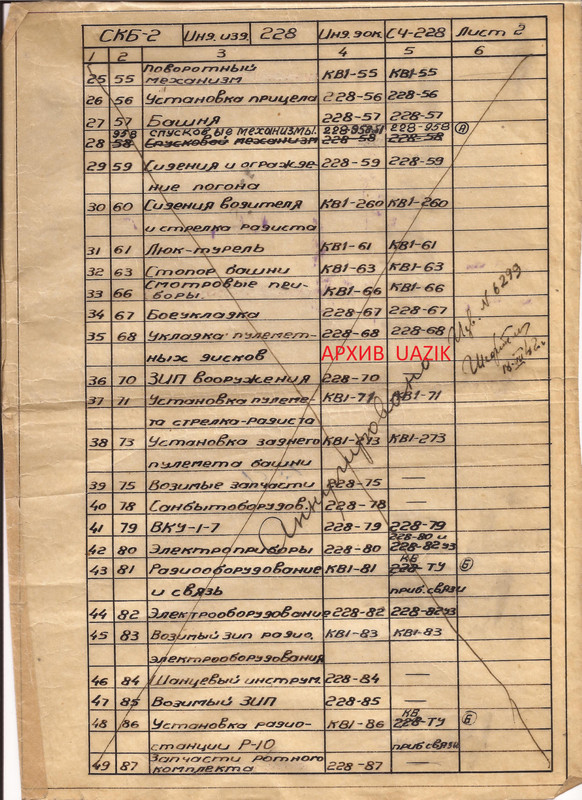 СКБ-2 Инд. изд. 228 Инд. док. СЧ-228 Лист 2
1 2 3 4 5 6
Поворотный
25 55 механизм КВ1-55 КВ1-55
26 56 Установка прицела 228-56 228-56
27 57 Башня 228-57 228-57
958 спусковые механизмы. 228-958 228-958 А
28 58 Спусковой механизм 228-58 228-58
29 59 Сидения и огражде- 228-59 228-59
ние погона
30 60 Сидения водителя КВ1-260 КВ1-260
и стрелка радиста
31 61 Люк-турель КВ1-61 КВ1-61
32 63 Стопор башни КВ1-63 КВ1-63
Смотровые при-
33 66 боры. КВ1-66 КВ1-66
34 67 Боеукладка 228-67 228-67
35 68 Укладка пулемет- 228-68 228-68
ных дисков
АРХИВ UAZIK
Инв. N 6293
36 70 ЗИП вооружения 228-70
37 71 Установка пулеме- КВ1-71 КВ1-71
та стрелка-радиста
38 73 Установка заднего КВ1-273 КВ1-273
пулемета башни
39 75 Возимые запчасти 228-75 —
40 78 Санбытоборудов. 228-78 —
Аннулировано
41 79 ВКУ-1-7 228-79 228-79
228-80 и
42 80 Электроприборы 228-80 228-82уз
КВ
43 81 Радиооборудование КВ1-81 228-ТУ Б
и связь приб.связи
44 82 Электрооборудование 228-82 228-82уз
45 83 Возимый зип радио, КВ1-83 КВ1-83
электрооборудования
46 84 Шанцевый инструм. 228-84 —
47 85 Возимый ЗИП 228-85 —
КВ
48 86 Установка радио- КВ1-86 228-ТУ Б
станции Р-10 приб.связи
Запчасти ротного
49 87 комплекта 228-87 —